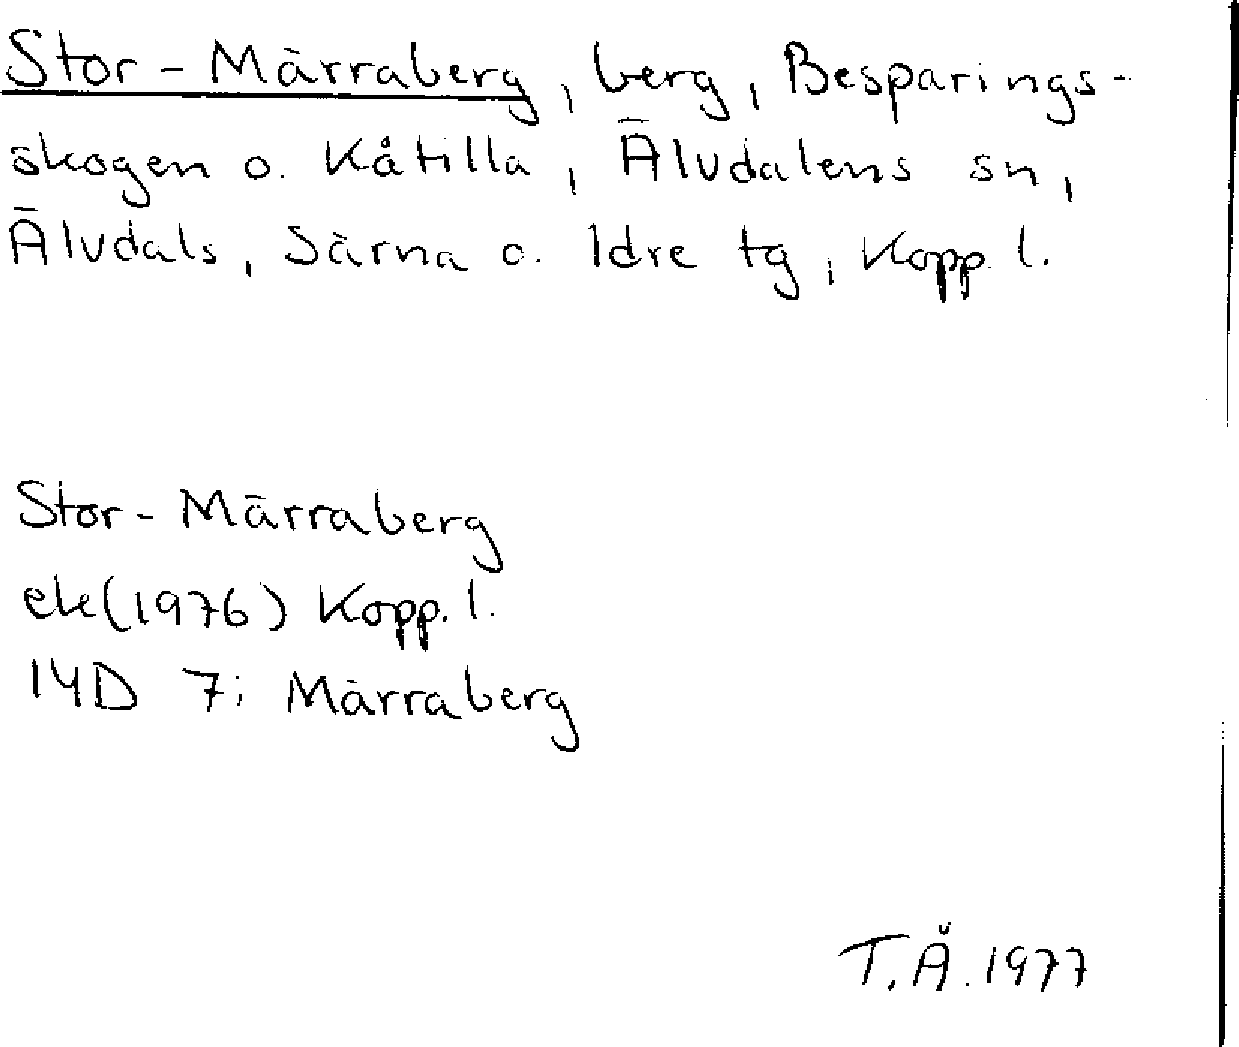 Stor-Märraberg, berg, Besparings-
skogen o. Kåtilla, Älvdalens sn,
Älvdals, Särna o. Idre tg, Kopp. l.
Stor-Märraberg
ek(1976) Kopp. l.
14D 7i Märraberg
T.Å. 1977